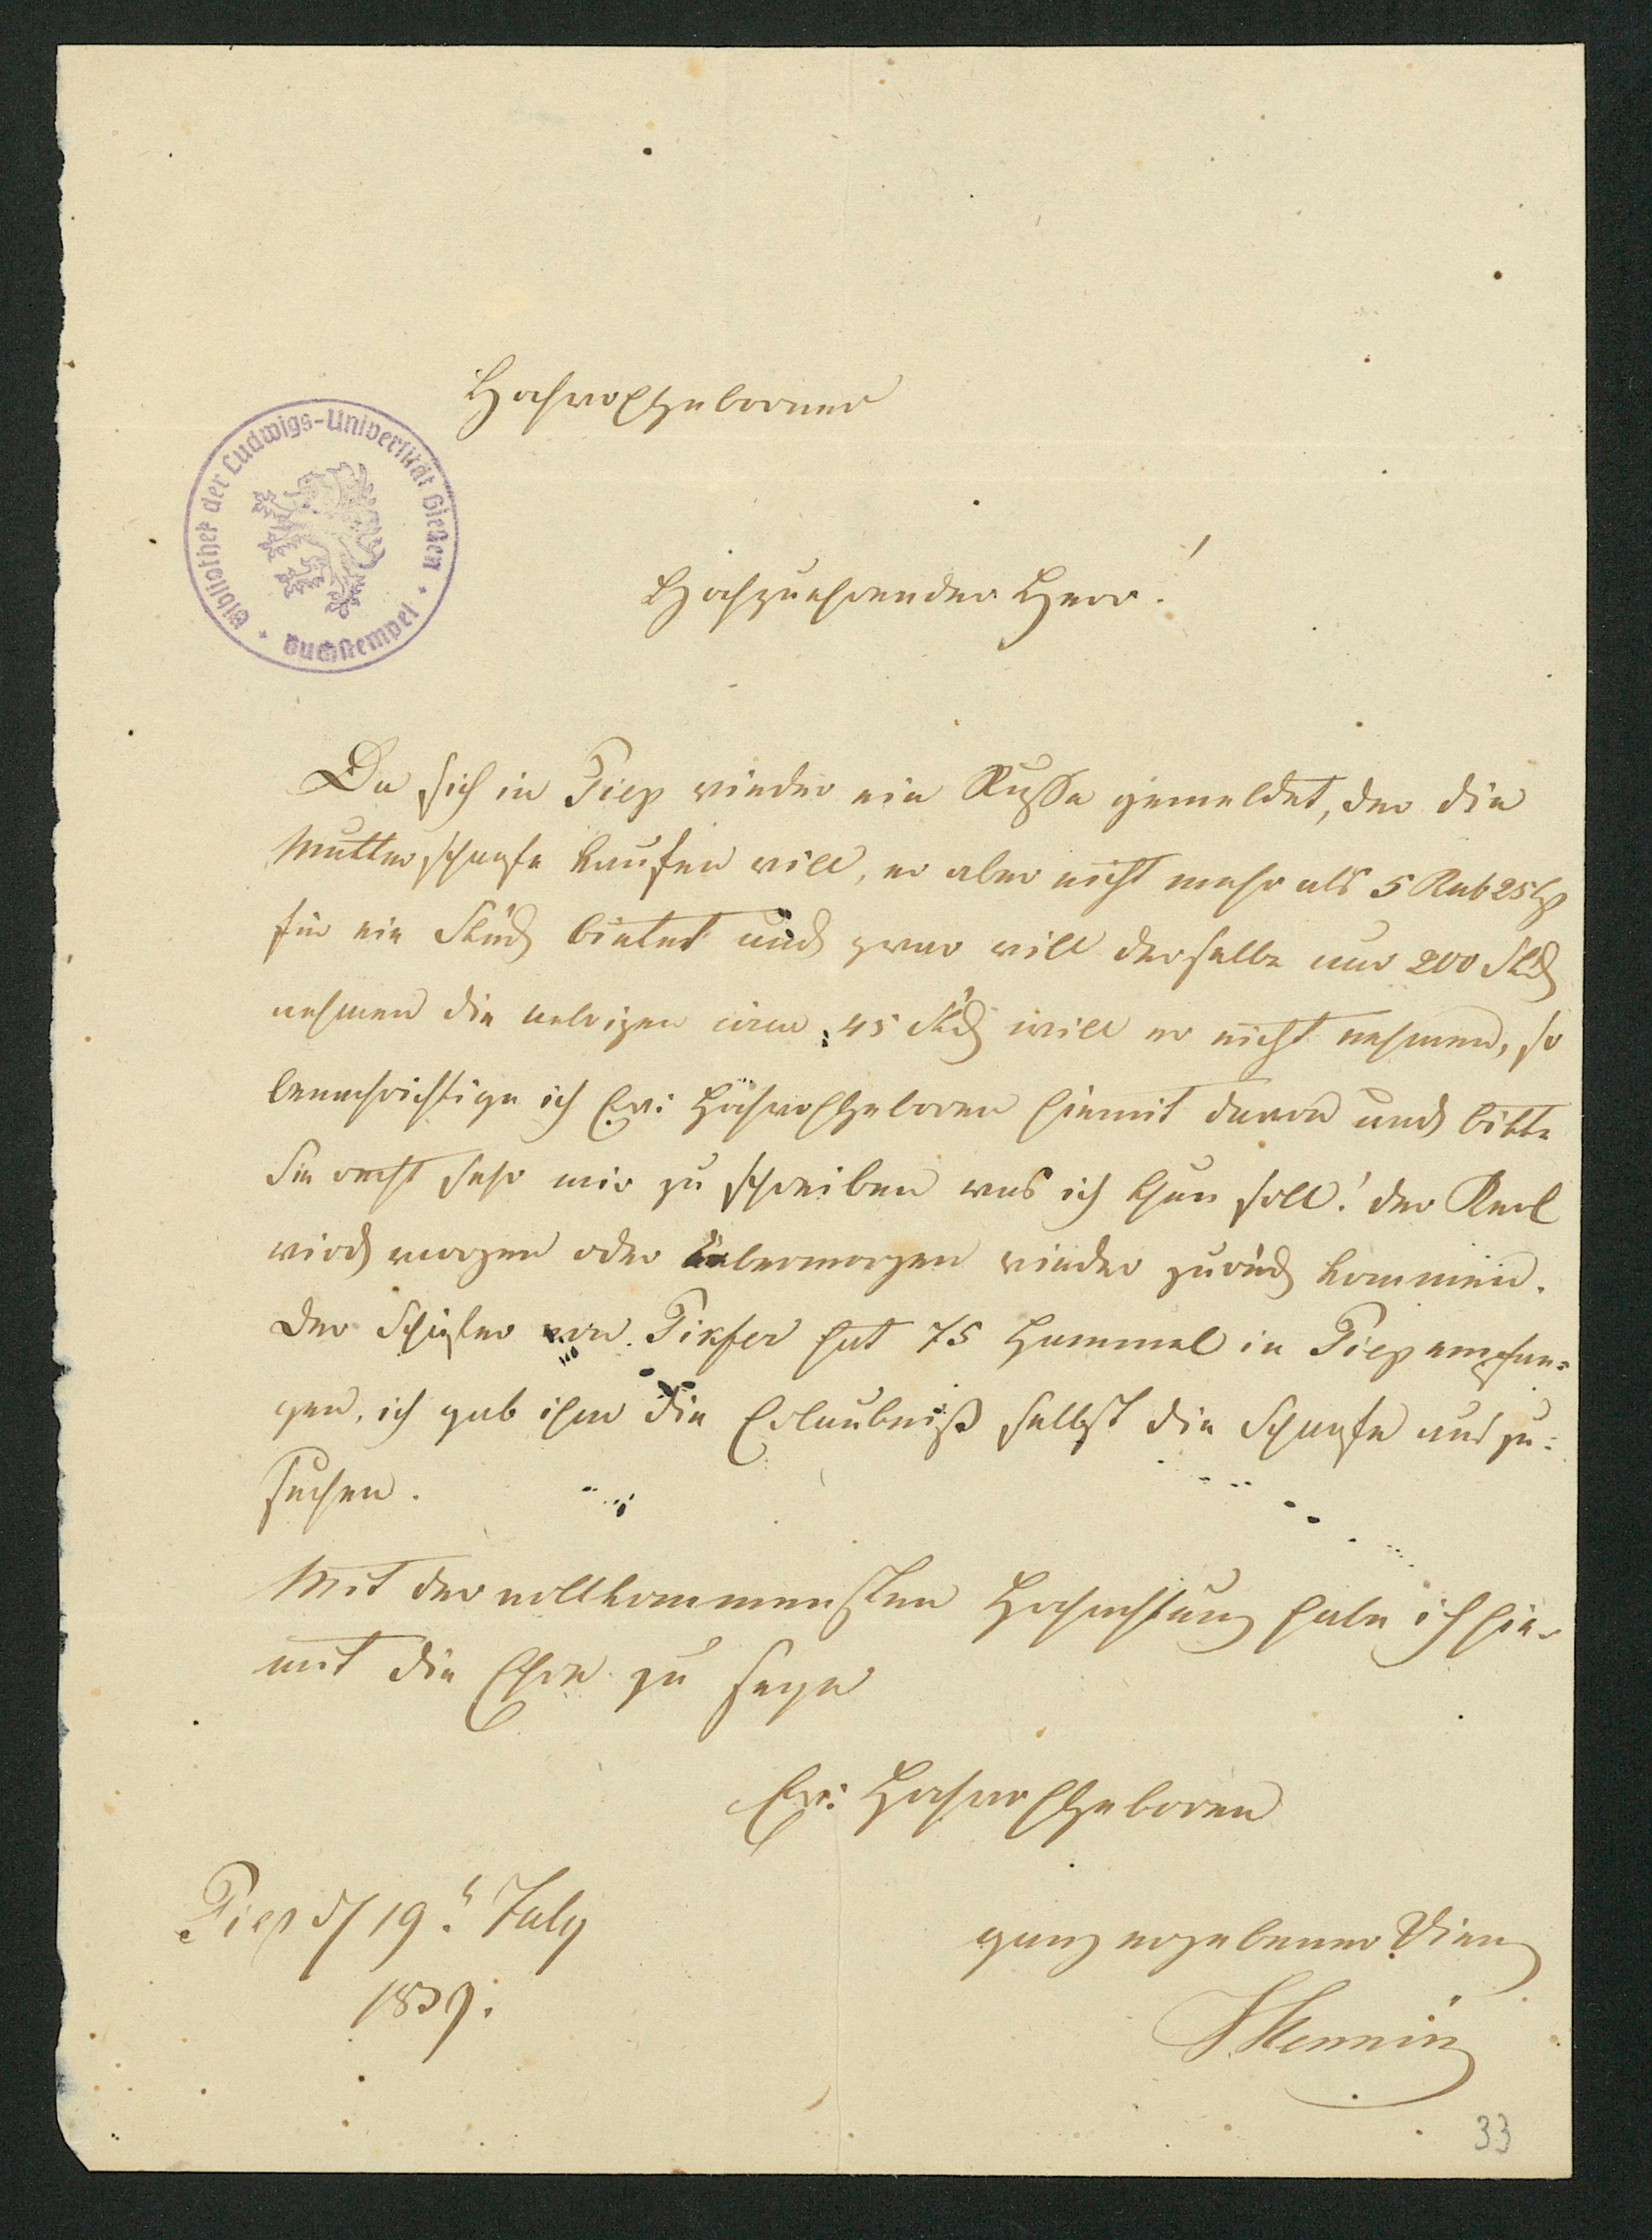 Hochwohlgeborner
Bibliothek der Ludwigs-Universität Gießen
Buchstempel
Hochzuehrender Herr!
Da sich in Piep wieder ein Russe gemeldet, der die
Mutterschaafe kaufen will, er aber nicht mehr als 5 Rub 25
für ein Stück bietet und zwar will derselbe nur 200 Stck
nehmen die uebrigen circa 45 Stck will er nicht nehmen, so
benachrichtige ich Ew: Hochwohlgeboren hiemit davon und bitte
Sie recht sehr mir zu schreiben was ich thun soll! der Kerl
wird morgen oder übermorgen wieder zurück kommen.
Der Schäfer von Pikfer hat 75 Hammel in Piep empfan=
gen, ich gab ihm die Erlaubniß selbst die Schaafe auszu=
suchen.
Mit der vollkommensten Hochachtung habe ich hie-
mit die Ehre zu seyn
Ew: Hochwohlgeboren
Piep d 19t July
1839.
ganz ergebener Dien
33